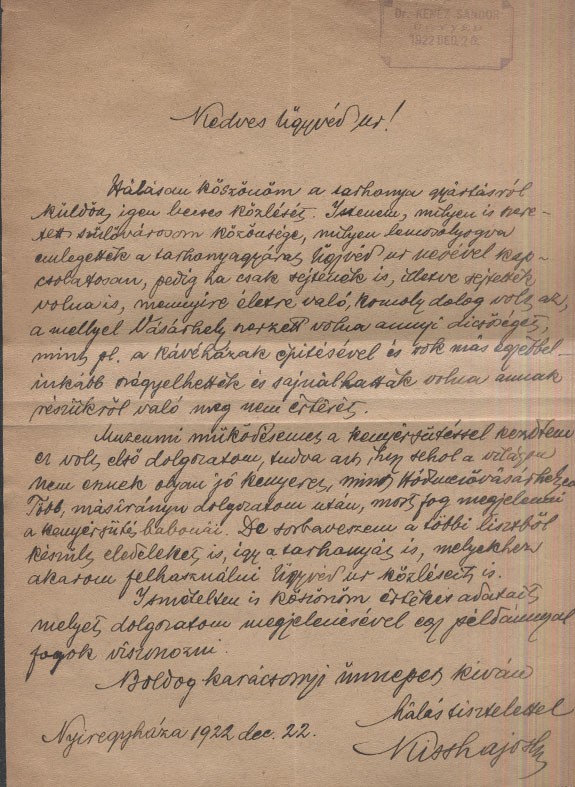 Dr. KENÉZ SÁNDOR
ÜGYVÉD
1922 DEC. 26.
Kedves Ügyvéd ur!
Hálásan köszönöm a tarhonya gyártásról
küldött igen becses közlését. Istenem, milyen is szere-
tett szülővárosom közönsége, milyen lemosolyogva
emlegették a tarhonyagyárat Ügyvéd ur nevével kap-
csolatosan, pedig ha csak sejtenék is, illetve sejtették
volna is, mennyire életre való, komoly dolog volt az,
a mellyel Vásárhely szerzett volna annyi dicsőséget,
mint pl. a kávéházak építésével és sok más egyébbel
inkább szégyelhették és sajnálhatták volna annak
részükről való meg nem értését.
Muzeumi működésemet a kenyérsütéssel kezdtem
ez volt első dolgozatom, tudva azt, hogy sehol a világon
nem esznek olyan jó kenyeret, mint Hódmezővásárhelyen
Több, másirányu dolgozatom után, most fog megjelenni
a kenyérsütés babonái. De sorbaveszem a többi lisztből
készült eledeleket is, így a tarhonyát is, melyekhez
akarom felhasználni Ügyvéd ur közléseit is.
Ismételten is köszönöm értékes adatait
melyet dolgozatom megjelenésével egy példánnyal
fogok viszonozni.
Boldog karácsonyi ünnepet kíván
hálás tisztelettel
Nyiregyháza 1922 dec. 22.
Kiss Lajos